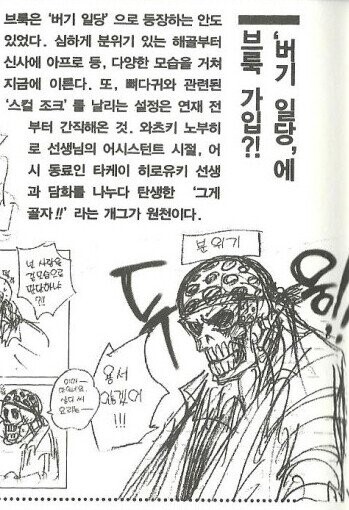 '버기 일당'에
브룩 가입?!
브룩은 '버기 일당' 으로 등장하는 안도
있었다. 심하게 분위기 있는 해골부터
신사에 아프로 등, 다양한 모습을 거쳐
지금에 이른다. 또, 뼈다귀와 관련된
'스컬 조크' 를 날리는 설정은 연재 전
부터 간직해온 것. 와츠키 노부히
로 선생님의 어시스턴트 시절, 어
시 동료인 타케이 히로유키 선생
과 담화를 나누다 탄생한 '그게
골자!!' 라는 개그가 원천이다.
분위기
넌 사람을
겉모습으로
판단하냐
?!
용서
!!!